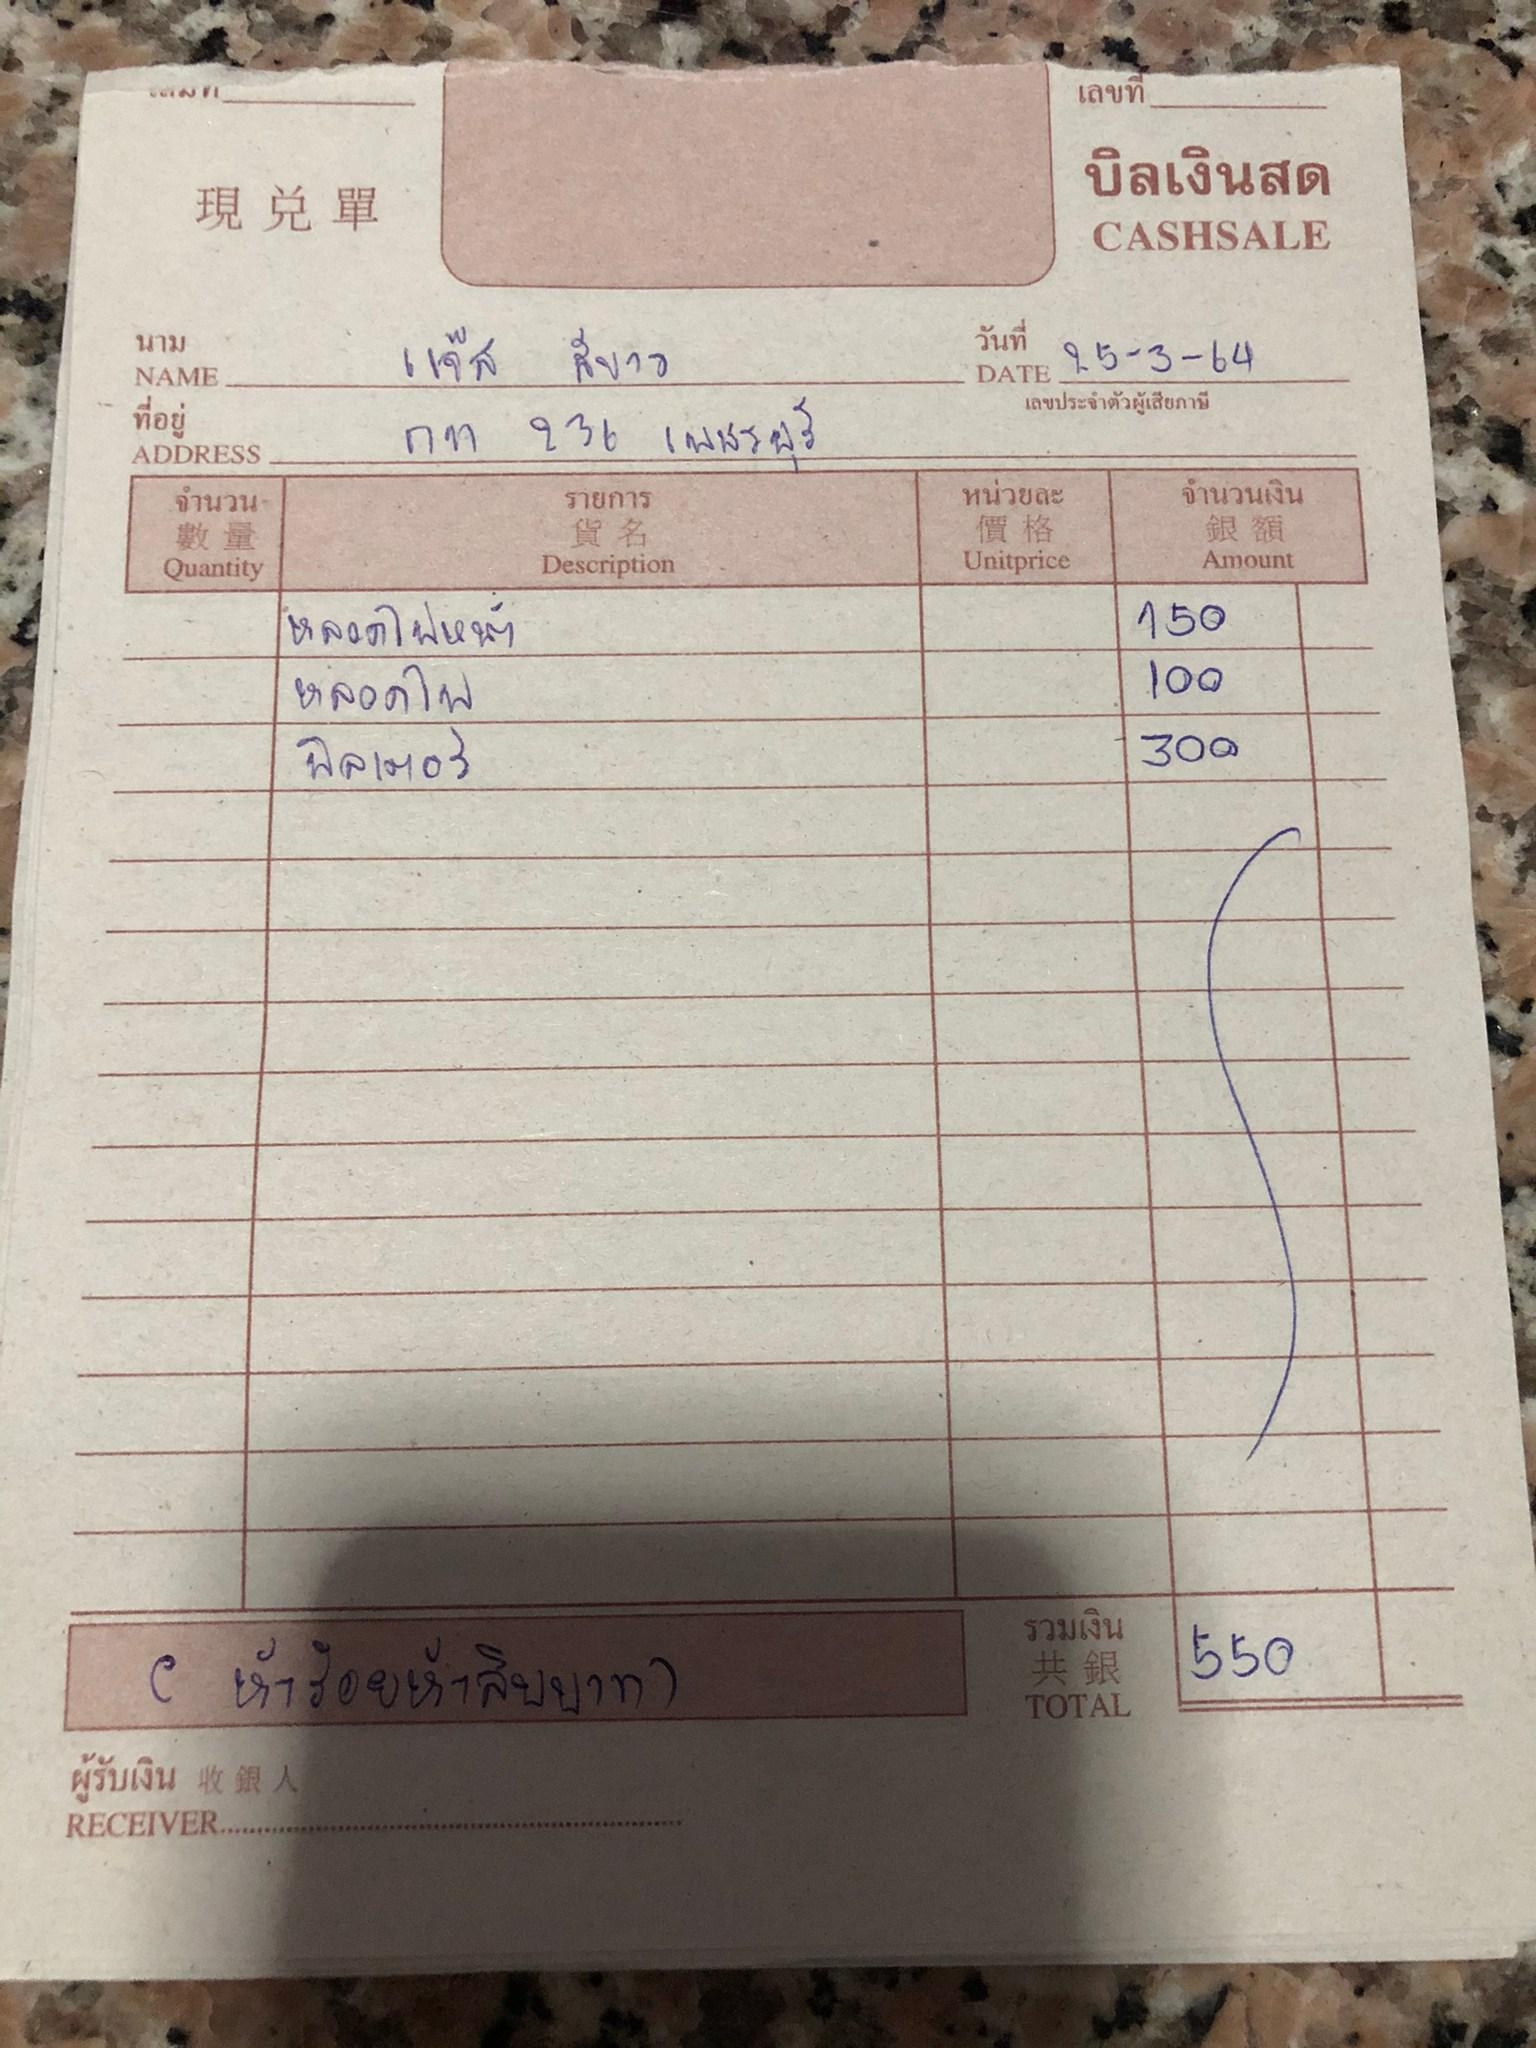 เล่มที่ เลขที่
現兑單 บิลเงินสด
CASHSALE
นาม วันที่
NAME แจ๊ส สีขาว DATE 25-3-64
เลขประจำตัวผู้เสียภาษี
ที่อยู่
ADDRESS กท 236 เพชรบุรี
จำนวน รายการ หน่วยละ จำนวนเงิน
數量 貨名 價格 銀額
Quantity Description Unitprice Amount
หลอดไฟหน้า 150
หลอดไฟ 100
ฟิลเตอร์ 300
รวมเงิน
共銀
TOTAL 550
( ห้าร้อยห้าสิบบาท )
ผู้รับเงิน 收銀人
RECEIVER